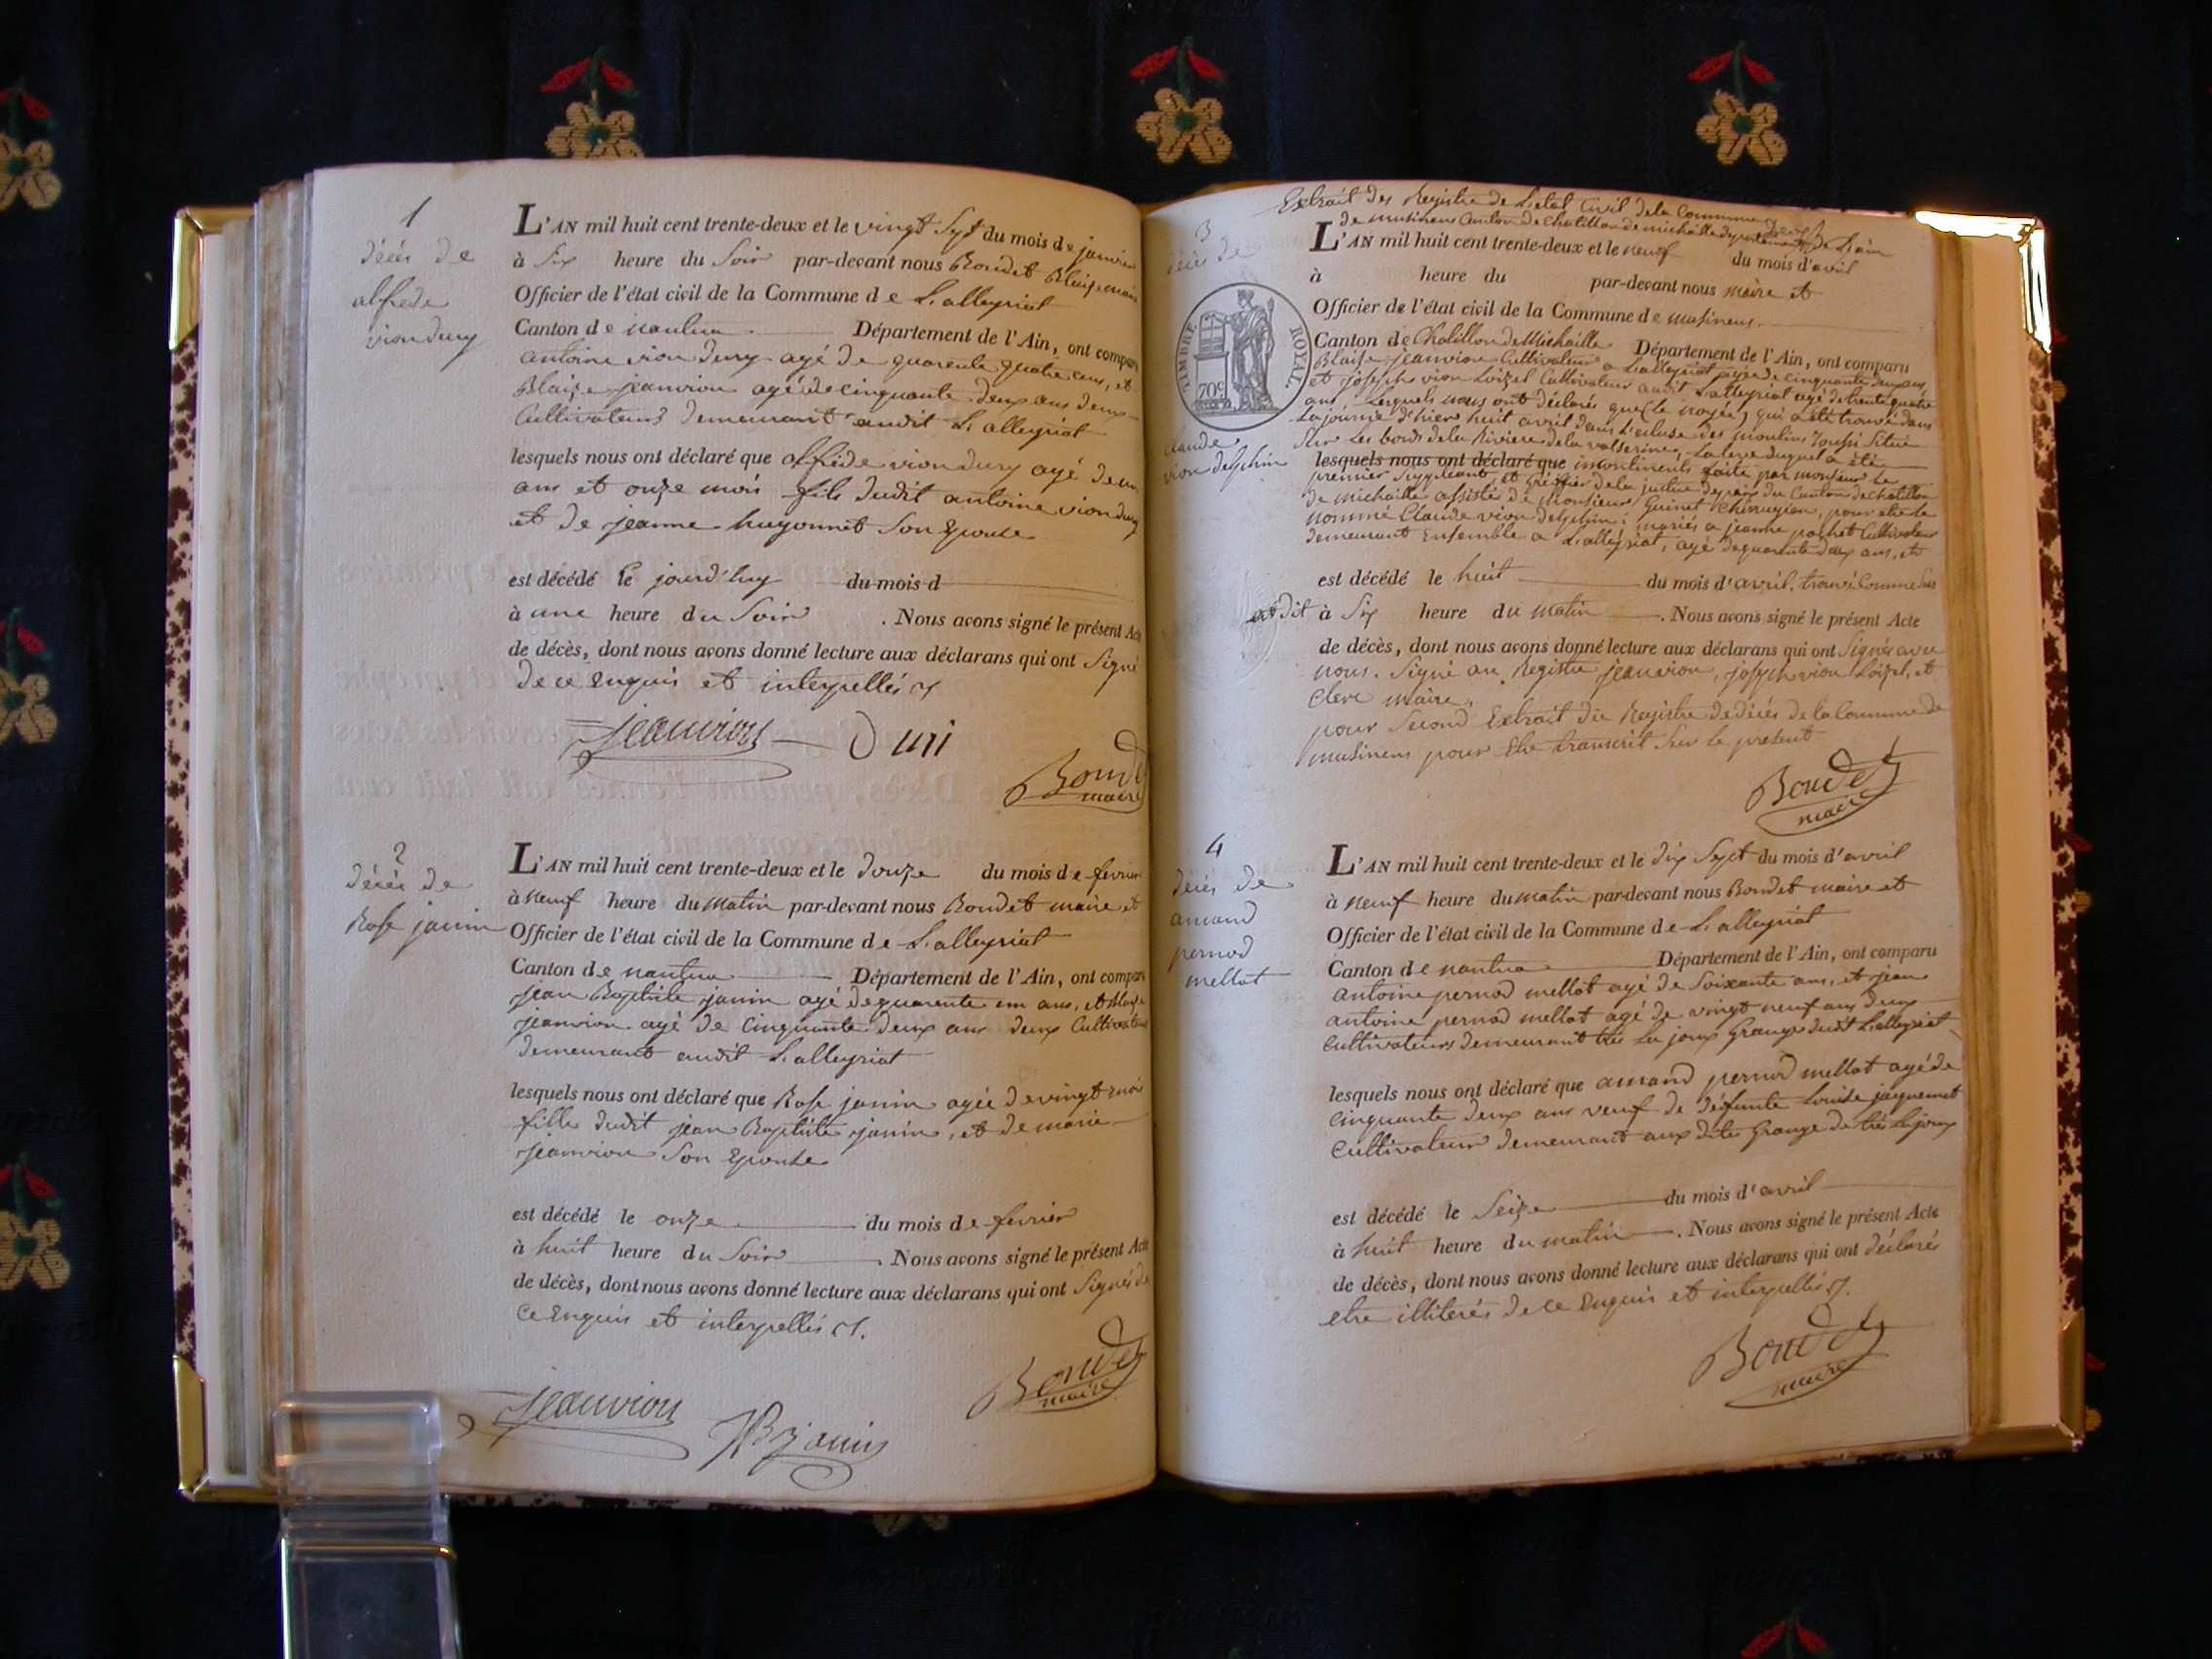 1
décés de
alfrede
vion dury
L'AN mil huit cent trente-deux et le vingt Sept du mois de janvier
à Six heure du Soir par-devant nous Boudet Blaise maire
Officier de l'état civil de la Commune de L'alleyriat
Canton de nantua Département de l'Ain, ont comparu
antoine vion dury agé de quarente quatre ans, et
Blaise jeanvion agé de cinquante deux ans deux
Cultivateurs demeurant audit L'alleyriat
lesquels nous ont déclaré que alfrede vion dury agé de un
ans et onze mois fils dudit antoine vion dury
et de jeanne hugonnet Son Epouse
est décédé le jourd'huy du mois d
à une heure du Soir . Nous avons signé le présent Acte
de décès, dont nous avons donné lecture aux déclarans qui ont Signé
de ce Enquis et interpellés
jeanvion Duri
Boudet
maire
2
décés de
Rose janin
L'AN mil huit cent trente-deux et le douze du mois de fevrier
à neuf heure du matin par-devant nous Boudet maire et
Officier de l'état civil de la Commune de L'alleyriat
Canton de nantua Département de l'Ain, ont comparu
jean Baptiste janin agé de quarente un ans, et Blaise
jeanvion agé de Cinquante deux ans deux Cultivateurs
demeurant audit L'alleyriat
lesquels nous ont déclaré que Rose janin agée de vingt mois
fille dudit jean Baptiste janin, et de marie
jeanvion Son Epouse
est décédé le onze du mois de fevrier
à huit heure du Soir . Nous avons signé le présent Acte
de décès, dont nous avons donné lecture aux déclarans qui ont Signés de
Ce Enquis et interpellés
jeanvion JB janin
Boudet
maire
Extrait des Registre de L'etat Civil de la Commune
de musinens Canton de Chatillon de michaille departement de L'ain
3
décés de
TIMBRE ROYAL
70c
Claude
vion delphin
L'AN mil huit cent trente-deux et le neuf du mois d'avril
à heure du par-devant nous maire et
Officier de l'état civil de la Commune de musinens
Canton de Chatillon de Michaille Département de l'Ain, ont comparu
Blaise jeanvion Cultivateur a L'alleyriat agé de cinquante deux ans,
et joseph vion Loizel Cultivateur audit L'alleyriat agé de trente quatre
ans, Lesquels nous ont déclarés que (le noyée) qui a été trouvé dans
La journée d'hier huit avril dans L'ecluse des moulins Situé
Sur Les bords de la Riviere de la valserine, La levée duquel a été
lesquels nous ont déclaré que incontinents faite par monsieur Le
premier Suppleant, et Greffier de la justice de paix du Canton de chatillon
de michaille assisté de Monsieur Guinet Chirurgien, pour etre le
nommé Claude vion delphin, mariés a jeanne pochet Cultivateur
demeurant Ensemble a L'alleyriat, agé de quarente deux ans, et
est décédé le huit du mois d'avril, trouvé Comme Sus
est dit à Six heure du matin . Nous avons signé le présent Acte
de décès, dont nous avons donné lecture aux déclarans qui ont Signés avec
nous. Signé au Registre jeanvion, joseph vion Loizel, et
Clerc maire.
pour Second Extrait du Registre de décés de la Commune de
musinens pour Etre transcrit Sur le present
Boudet
maire
4
décés de
amand
pernod
mellot
L'AN mil huit cent trente-deux et le dix Sept du mois d'avril
à neuf heure du matin par-devant nous Boudet maire et
Officier de l'état civil de la Commune de L'alleyriat
Canton de nantua Département de l'Ain, ont comparu
antoine pernod mellot agé de Soixante ans, et jean
antoine pernod mellot agé de vingt neuf ans deux
Cultivateurs demeurant très La joux Grange dudit L'alleyriat
lesquels nous ont déclaré que amand pernod mellot agé de
Cinquante deux ans veuf de défunte Louise jaquemet
Cultivateur demeurant aux dites Grange de très Lajoux
est décédé le Seize du mois d'avril
à huit heure du matin . Nous avons signé le présent Acte
de décès, dont nous avons donné lecture aux déclarans qui ont déclarés
etre illiterés de ce Enquis et interpellés
Boudet
maire